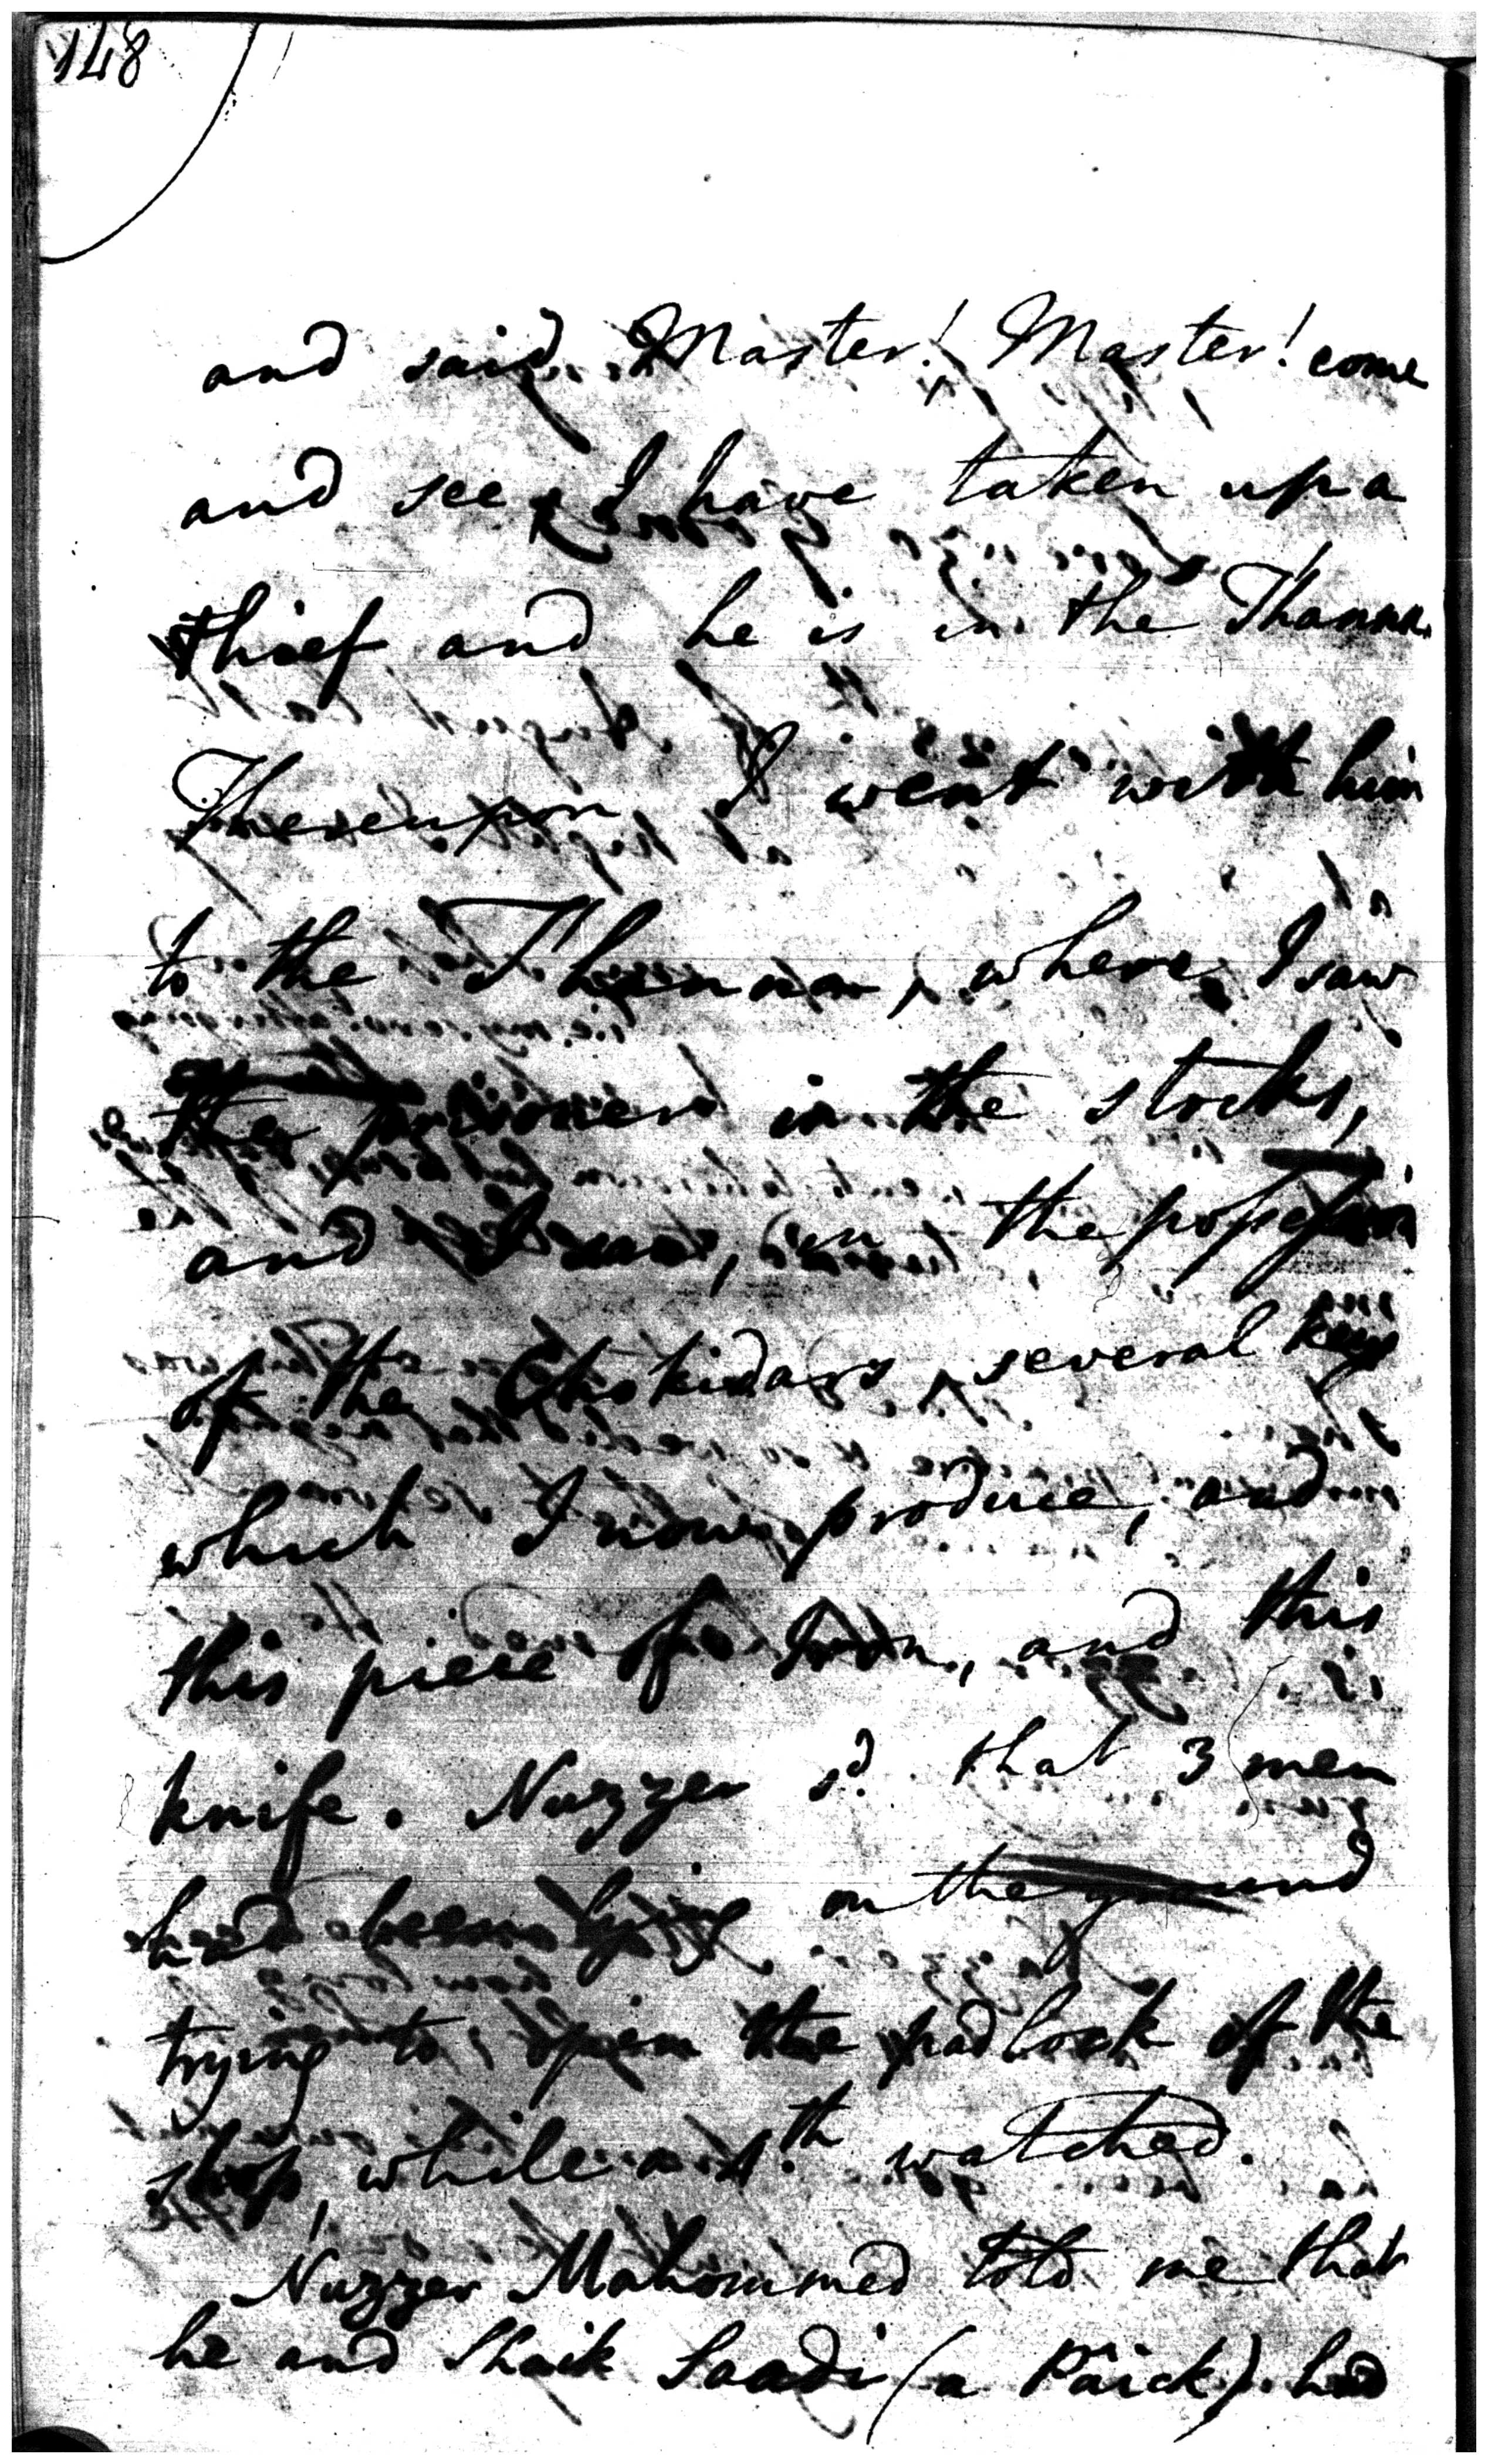 148
and said Master! Master! come
and see, I have taken up a
thief and he is in the Thanna.
Thereupon I went with him
to the Thanna, where I saw
the prisoner in the stocks,
and I saw, in the possession
of the Chokidars, several keys
which I now produce, and
this piece of Iron, and this
knife. Nuzzer sd. that 3 men
had been lying on the ground
trying to open the padlock of the
shop, while a 4th. watched.
Nuzzer Mahommed told me that
he and Shaik Saadi (a Paick) had